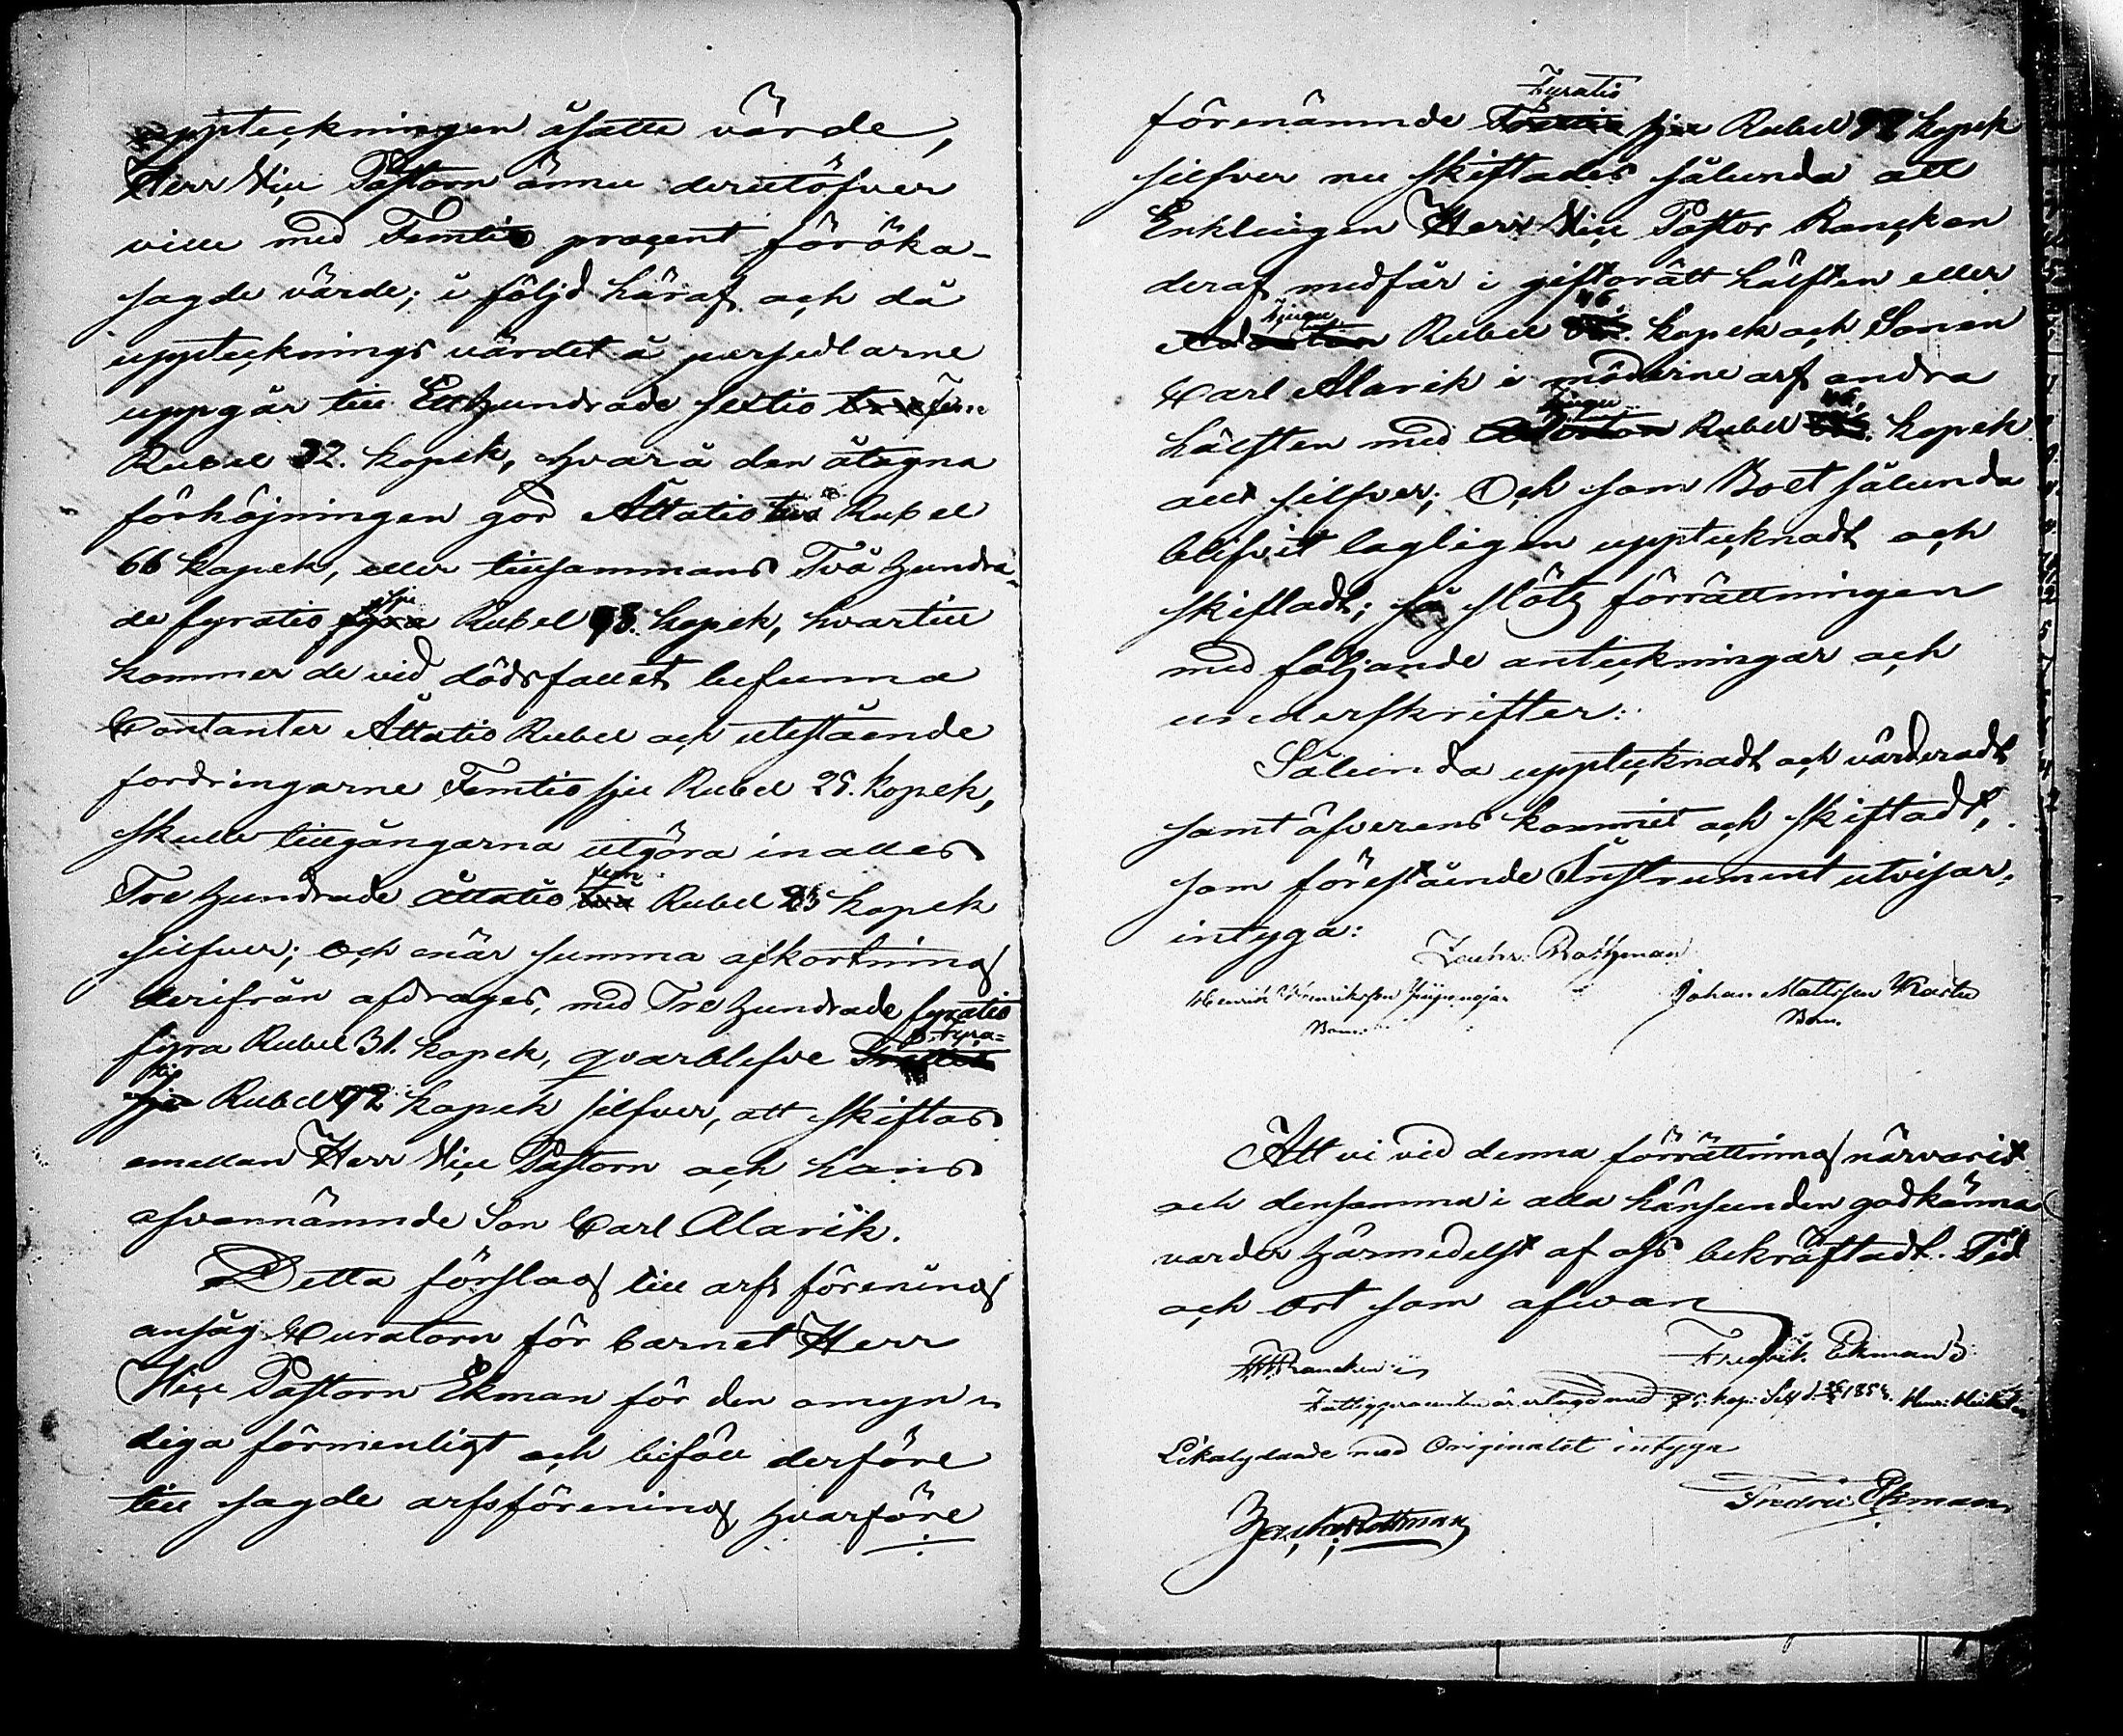 uppteckningen åsatte värde,
Herr Vice Pastorn ännu derutöfver
ville med Femtio procent föröka
sagde värde; i följd häraf och då
upptecknings värdet å persedlarne
uppgår till Etthundrade sextio fem
Rubel 32. kopek, hvarå den åtagna
förhöjningen gör Åttatio två Rubel
66 kopek, eller tillsammans Två hundra-
de fyratio sju Rubel 98. kopek, hvartill
kommer de vid dödsfallet befunna
Contanter Åttatio Rubel och utestående
fordringarne Femtio sju Rubel 25. kopek,
skulle tillgångarna utgöra inalles
Tre hundrade Åttatio fem Rubel 23 kopek
silfver; och enär summa afkortning
derifrån afdrages, med Tre hundrade fyratio
fyra Rubel 31. kopek, qvarblefve Fyra-
tio Rubel 92 kopek silfver, att skiftas
emellan Herr Vice Pastorn och hans
ofvannämnde Son Carl Alarik.
Detta förslag till arfs förening
ansåg Curatorn för barnet Herr
Vice Pastorn Ekman för den omyn-
diga förmenligt och biföll derföre
till sagde arfsförening hvarföre
förenämnde Fyratio Rubel 92 kopek
silfver nu skiftades sålunda att
Enklingen Herr Vice Pastor Rancken
deraf medfår i giftorätt hälften eller
tjugu Rubel 46. kopek och Sonen
Carl Alarik i möderne arf andra
hälften med tjugu Rubel 46. kopek
allt silfver; Och som Boet sålunda
blifvit lagligen upptecknadt och
skiftadt; så slöts förrättningen
med följande anteckningar och
underskrifter:
Sålunda upptecknadt och värderadt
samt öfverens kommit och skiftadt,
som förestående Instrument utvisar,
intyga:
Zachr. Rothman
Henrik Henriksson Johan Mattsson
Att vi vid denna förrättning närvarit
och densamma i alla hänseenden godkänna
varder härmedelst af oss bekräftadt. Tid
och Ort som ofvan
Rancken Fredrik Ekman
Fattigprocenten är erlagd med kop. Silf d. 1853.
Likalydande med Originalet intyga
Fredric Ekman
Zach. Rothman